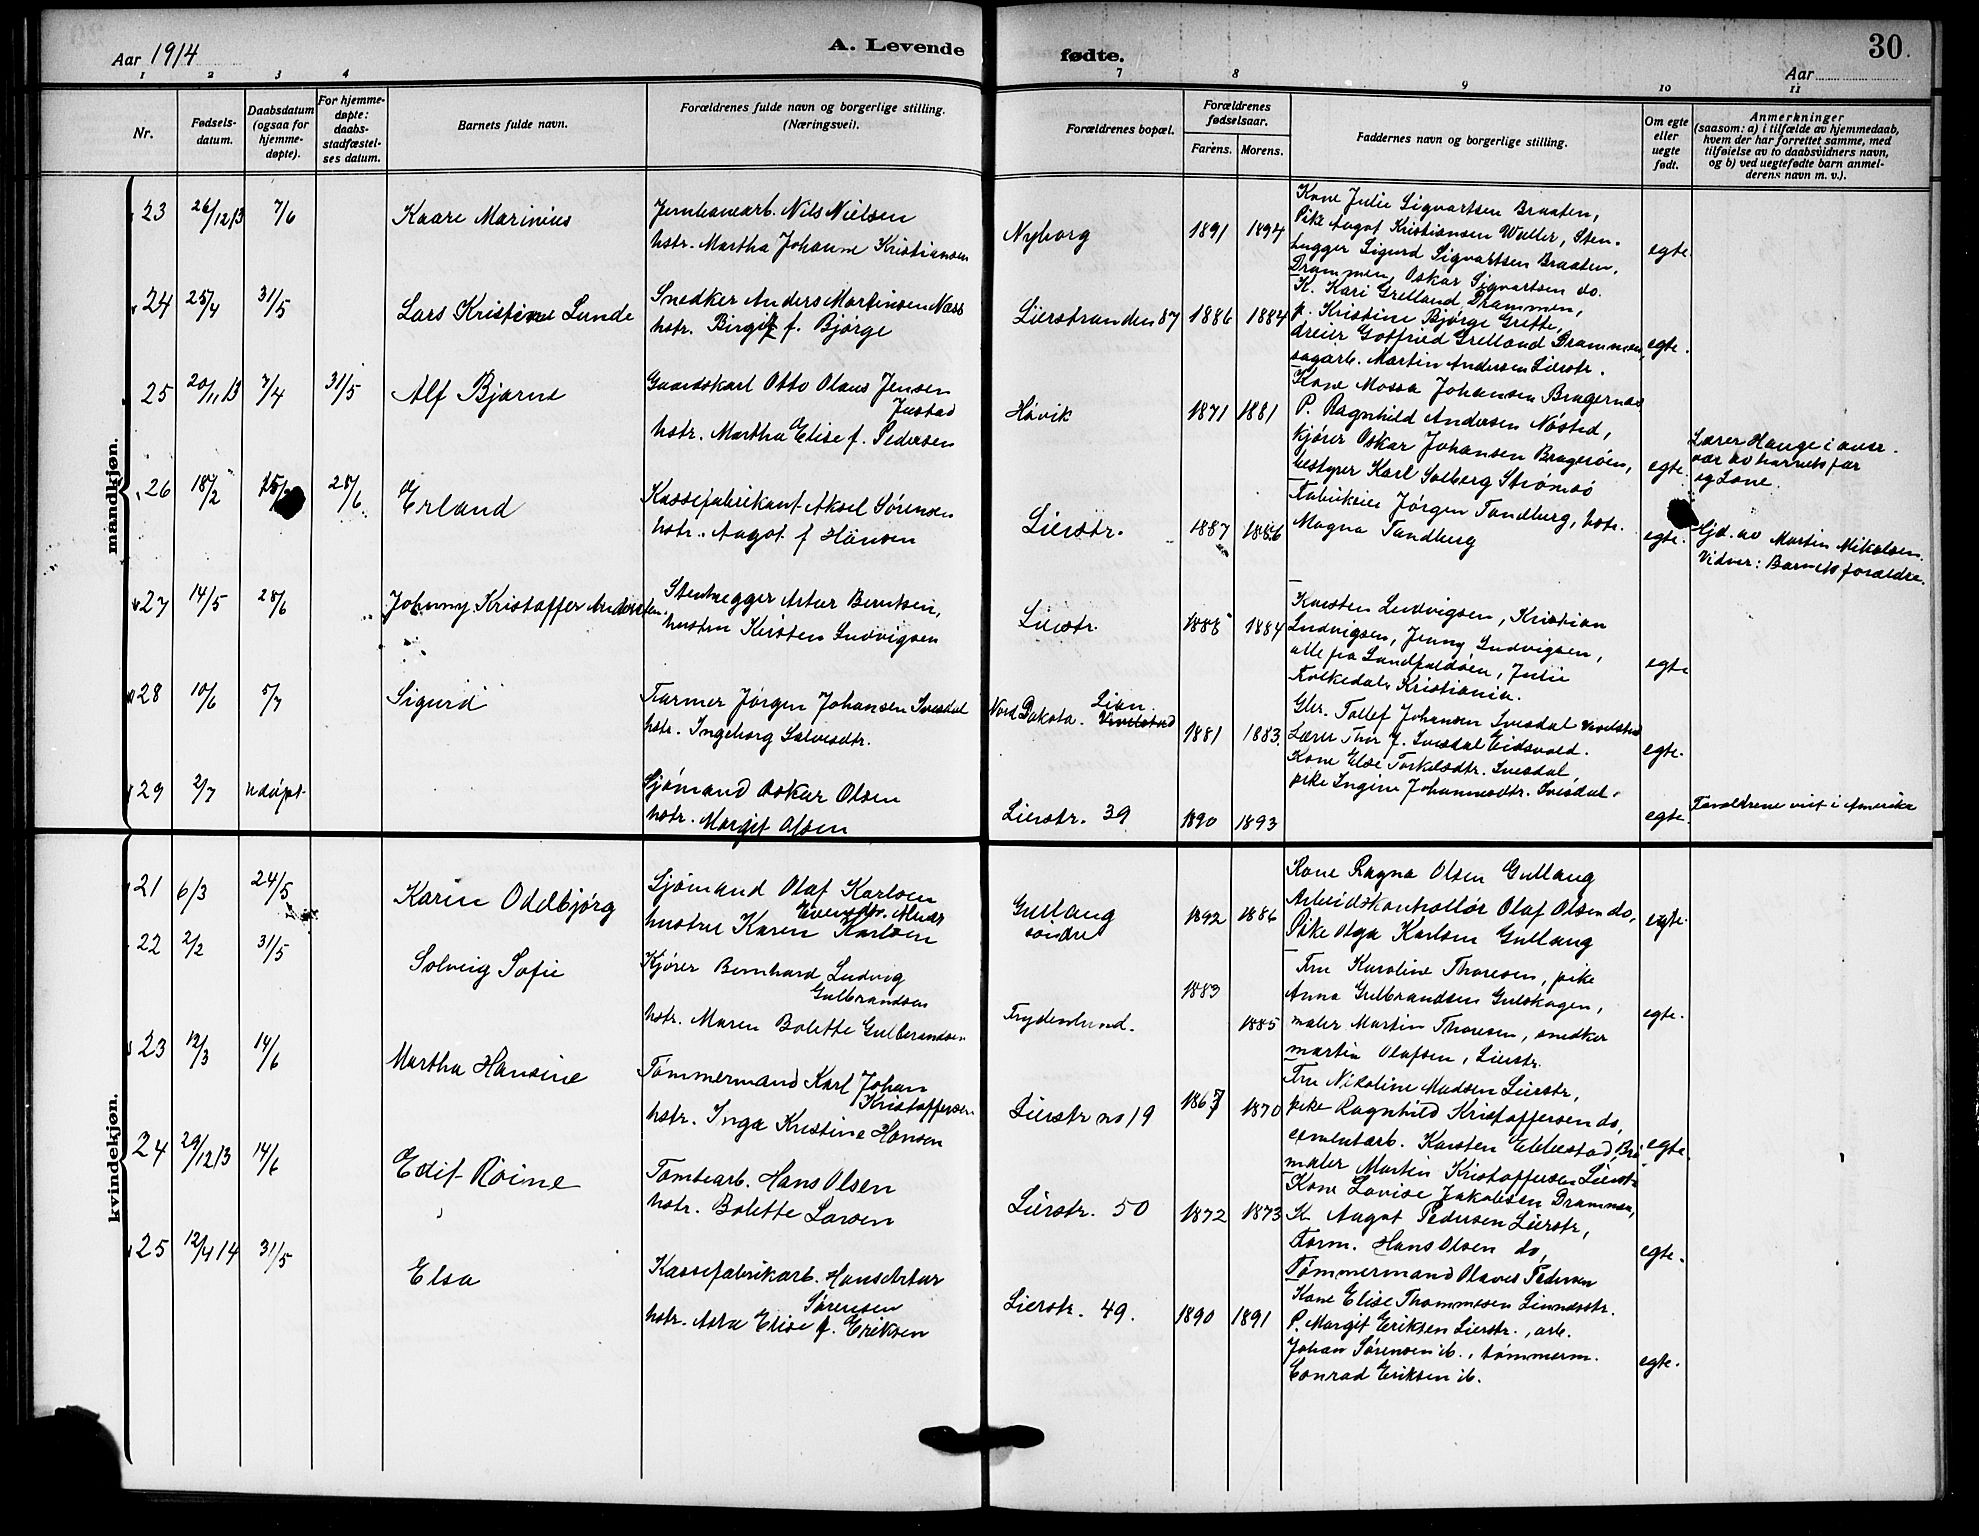 Aar 1914
A. Levende fødte.
30.
Aar
1 2 3 4 7 8 9 10 11
Nr.
Fødsels-
datum.
Daabsdatum
(ogsaa for
hjemme-
døpte).
For hjemme-
døpte:
daabs-
stadfæstel-
ses datum.
Barnets fulde navn.
Forældrenes fulde navn og borgerlige stilling.
(Næringsvei.)
Forældrenes bopæl.
Forældrenes
fødselsaar.
Farens. Morens.
Faddernes navn og borgerlige stilling.
Om egte
eller
uegte
født.
Anmerkninger
(saasom: a) i tilfælde av hjemmedaab,
hvem der har forrettet samme, med
tilføielse av to daabsvidners navn,
og b) ved uegtefødte barn anmel-
derens navn m. v.).
mandkjøn.
23 26/12 13 7/6 Kaare Marinius
Jernbanearb. Nils Nielsen
hstr. Martha Johanne Kristiansen
Nyborg 1891 1894
Kone Julie Sigvartsen Braaten,
Pike Aagot Kristiansen Waller, Sten-
hugger Sigurd Sigvartsen Braaten,
Drammen, Oskar Sigvartsen do.
egte.
24 25/4 31/5 Lars Kristian Lunde
Snedker Anders Martinsen Næss
hstr. Birgit f. Bjørge
Lierstranden 87 1886 1884
K. Kari Grelland Drammen,
p. Kristine Bjørge Grette,
dreier Gotfried Grelland Drammen,
sagarb. Martin Andersen Lierstr.
egte.
25 20/11 13 7/4 31/5 Alf Bjarne
Gaardskarl Otto Olaus Jensen
Justad
hstr. Martha Elise f. Pedersen
Høvik 1871 1881
Kone Mossa Johansen Bragernæs
P. Ragnhild Andersen Nøsted,
kjører Oskar Johansen Bragerøen,
bestyrer Karl Solberg Strømsø
egte.
Lærer Hauge i over-
vær av barnets far
og Lone.
26 18/2 28/6 Erland
Kassefabrikant Aksel Sørensen
hstr. Aagot f Hansen
Lierstr. 1887 1886
Fabrikeier Jørgen Tandberg, hstr.
Magna Tandberg
egte.
Hjd. av Martin Mikalsen
Vidner: Barnets forældre.
27 14/5 28/6 Johnny Kristoffer Andersen
Stenhugger Artur Berntsen,
hustru Kirsten Ludvigsen
Lierstr. 1888 1884
Karsten Ludvigsen, Kristian
Ludvigsen, Jenny Ludvigsen,
alle fra Landfaldøen, Julie
Folkedal Kristiania.
egte
28 10/6 5/7 Sigurd
Farmer Jørgen Johansen Ivesdal
hstr. Ingeborg Salvesdtr.
Nord Dakota. Lian.
1881 1883.
Gbr. Tollef Johansen Ivesdal
Lærer Thor J. Ivesdal Eidsvold.
Kone Else Torkelsdtr. Ivesdal,
pike Ingine Johannesdtr. Ivesdal.
egte.
29 2/7 udøpt.
Sjømand Oskar Olsen
hstr. Margit Olsen
Lierstr. 39 1890 1893
egte.
Forældrene reist i Amerika
kvindekjøn.
21 6/3 24/5 Karin Oddbjørg
Sjømand Olaf Karlsen
Evensdtr.
hustru Karen Karlsen
Gullaug
søndre
1892 1886
Kone Ragna Olsen Gullaug
Arbeidskontrollør Olaf Olsen do,
Pike Olga Karlsen Gullaug
egte.
22 2/2 31/5 Solveig Sofie
Kjører Bernhard Ludvig
Gulbrandsen
hstr. Maren Bolette Gulbrandsen
Frydenlund. 1883 1885
Fru Karoline Thoresen, pike
Anna Gulbrandsen Gulskogen,
maler Martin Thoresen, snedker
Martin Olafsen, Lierstr.
egte.
23 12/3 14/6 Martha Hansine
Tømmermand Karl Johan
Kristoffersen
hstr. Inga Kristine Hansen
Lierstr no 19 1867 1870
Fru Nikoline Madsen Lierstr,
pike Ragnhild Kristoffersen do,
cementarb. Karsten Ellestad,
maler Martin Kristoffersen Lierstr
egte.
24 29/12 13 14/6 Edit Roine
Tomtearb. Hans Olsen
hstr. Bolette Larsen
Lierstr. 50 1872 1873
Kone Lovise Jakobsen Drammen,
K. Aagot Pedersen Lierstr,
Form. Hans Olsen do,
Tømmermand Olaves Pedersen
egte.
25 12/4 14 31/5 Elsa
Kassefabrikarb. Hans Artur
Sørensen
hstr. Asta Elise f. Eriksen
Lierstr. 49. 1890 1891
Kone Elise Thommesen
P. Margit Eriksen Lierstr., arb.
Johan Sørensen ib., tømmerm.
Conrad Eriksen ib.
egte.